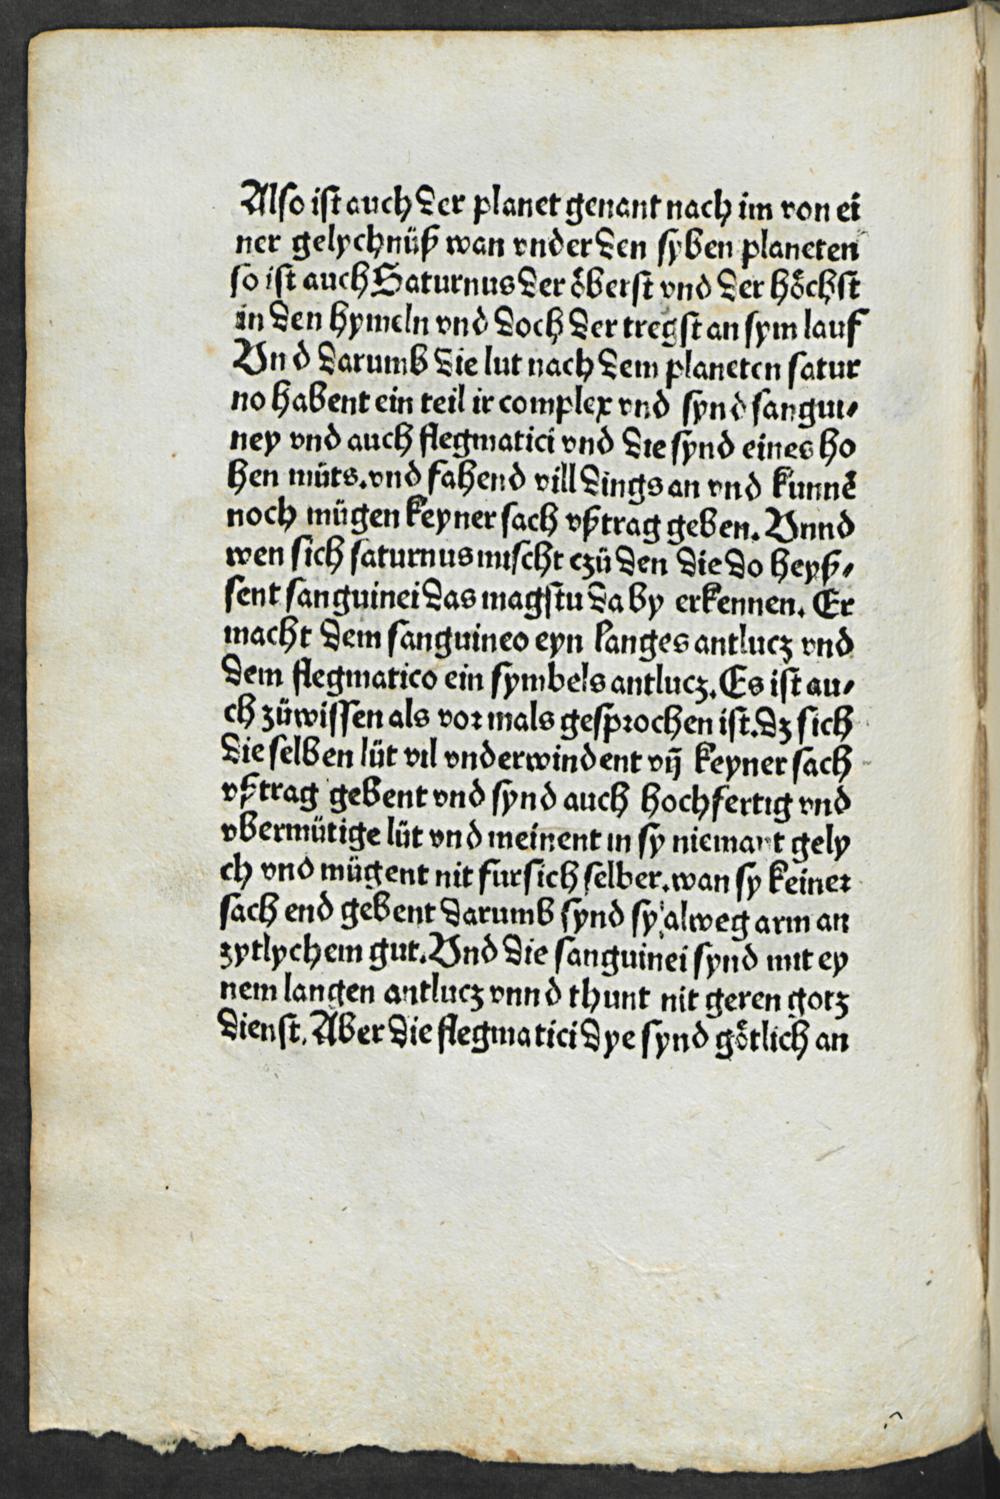 Also ist auch der planet genant nach im von ei
ner gelychnüß wan vnder den syben planeten
so ist auch Saturnus der öberst vnd der höchst
in den hymeln vnd doch der tregst an sym lauf
Vnd darumb die lut nach dem planeten satur
no habent ein teil ir complex vnd synd sangui⸗
ney vnd auch flegmatici vnd die synd eines ho
hen müts.vnd fahend vill dings an vnd kunnē
noch mügen keyner sach vßtrag geben. Vnnd
wen sich saturnus mischt czü den die do heyß⸗
sent sanguinei das magstu da by erkennen. Er
macht dem sanguineo eyn langes antlucz vnd
dem flegmatico ein symbels antlucz. Es ist au⸗
ch züwissen als vor mals gesprochen ist.dz sich
die selben lüt vil vnderwindent vn̄ keyner sach
vßtrag gebent vnd synd auch hochfertig vnd
vbermütige lüt vnd meinent in sy niemant gely
ch vnd mügent nit fur sich selber.wan sy keiner
sach end gebent darumb synd sy alweg arm an
zytlychem gut. Vnd die sanguinei synd mit ey
nem langen antlucz vnnd thunt nit geren gotz
dienst. Aber die flegmatici dye synd götlich an